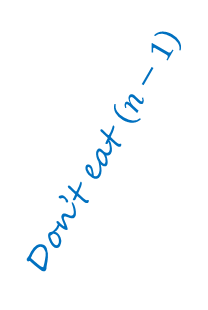 Don't eat (n − 1)